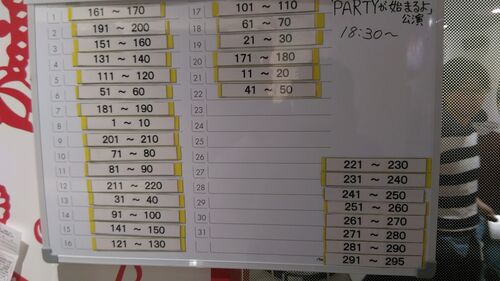 「PARTYが始まるよ」
公演
18:30〜
1 161 ~ 170
2 191 ~ 200
3 151 ~ 160
4 131 ~ 140
5 111 ~ 120
6 51 ~ 60
7 181 ~ 190
8 1 ~ 10
9 201 ~ 210
10 71 ~ 80
11 81 ~ 90
12 211 ~ 220
13 31 ~ 40
14 91 ~ 100
15 141 ~ 150
16 121 ~ 130
17 101 ~ 110
18 61 ~ 70
19 21 ~ 30
20 171 ~ 180
21 11 ~ 20
22 41 ~ 50
23
24
25
26
27
28
29
30
31
221 ~ 230
231 ~ 240
241 ~ 250
251 ~ 260
261 ~ 270
271 ~ 280
281 ~ 290
291 ~ 295